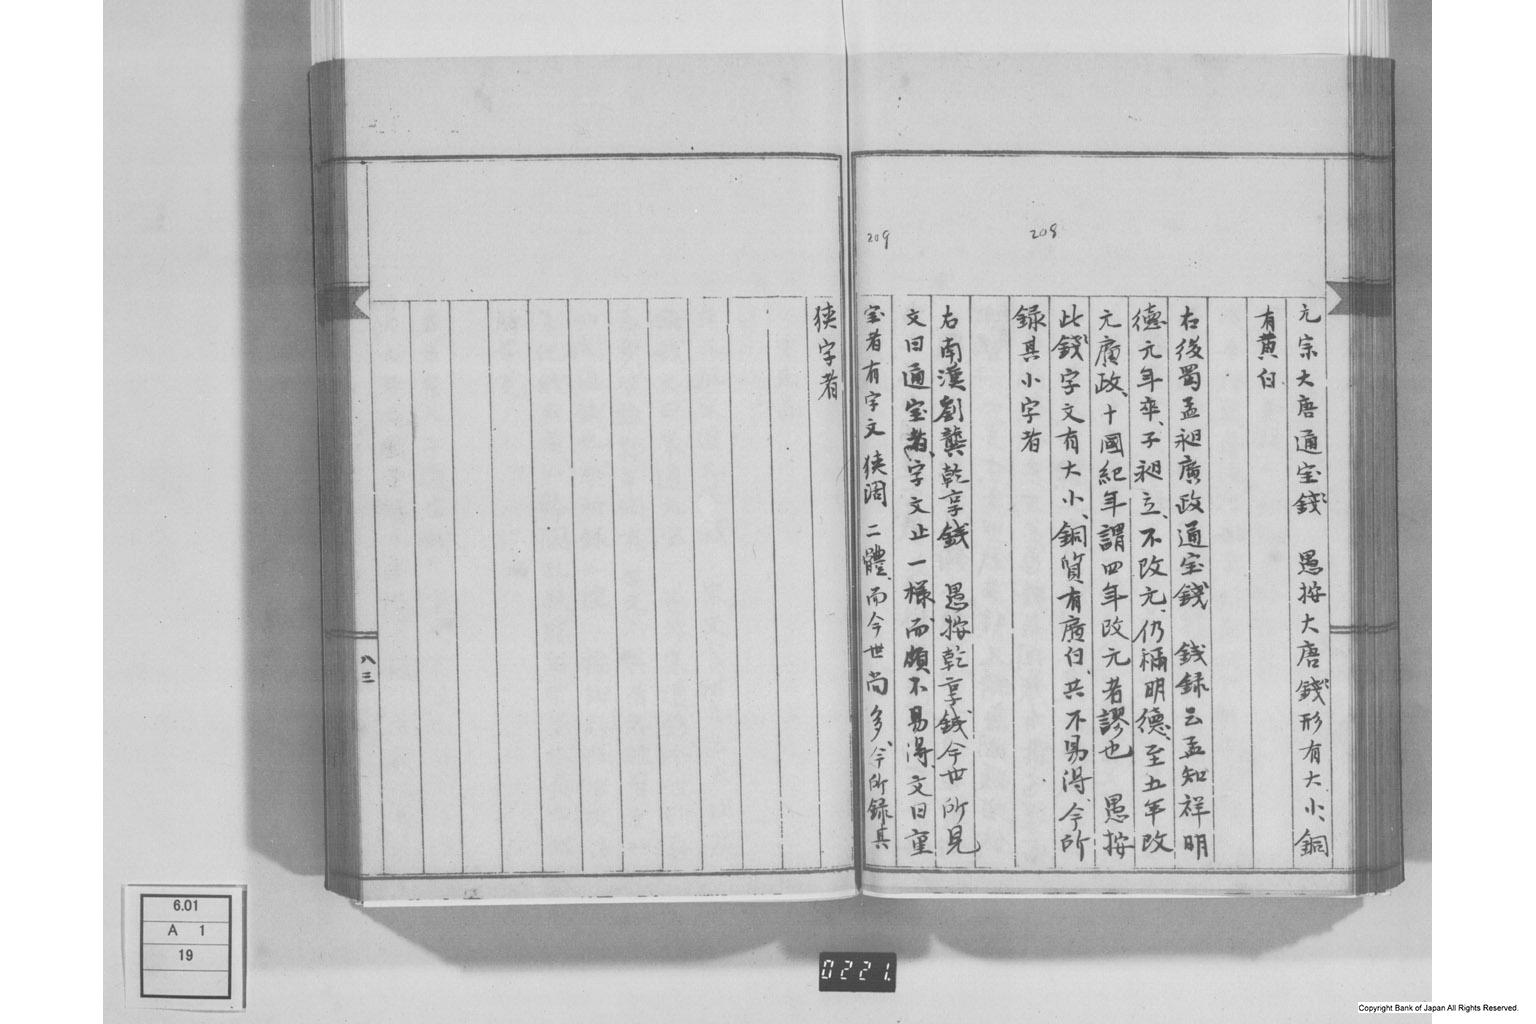 元宗大唐通宝錢　愚按大唐錢形有大小、銅
有黄白
208
右後蜀孟昶廣政通宝錢　錢録云孟知祥明
德元年卒、子昶立、不改元、仍稱明德、至五年改
元廣政、十國紀年謂四年改元者謬也　愚按
此錢字文有大小、銅質有廣白、共不易得、今所
録其小字者
209
右南漢劉龑乾亨錢　愚按乾亨錢今世所見
文曰通宝者、字文止一様、而頗不易得、文曰重
宝者有字文狭濶二體、而今世尚多、今所録其
狭字者
八三
6.01
A 1
19
0221.
Copyright Bank of Japan All Rights Reserved.